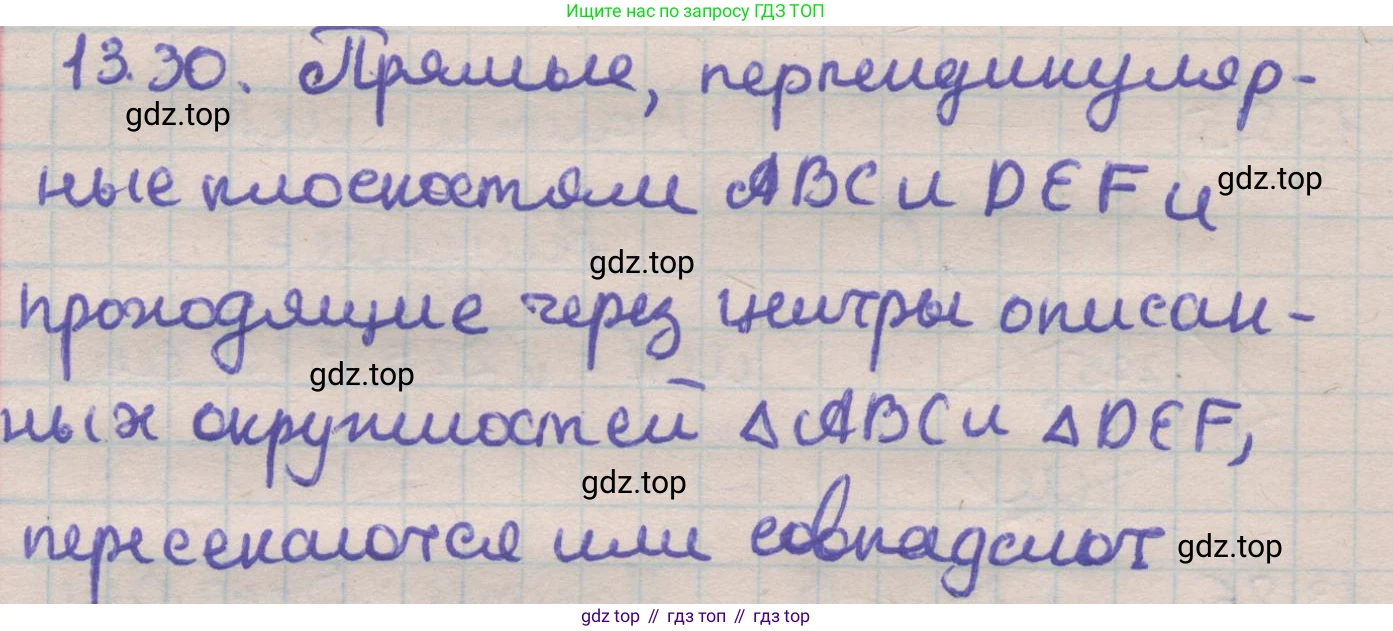 Ищите нас по запросу ГДЗ ТОП
13.30. Прямые, перпендикуляр-
gdz.top
ные плоскостям ABC и DEF и
gdz.top
gdz.top
проходящие через центры описан-
gdz.top
ных окружностей △ABC и △DEF,
gdz.top
пересекаются или совпадают
gdz.top
gdz top // гдз топ // gdz.top